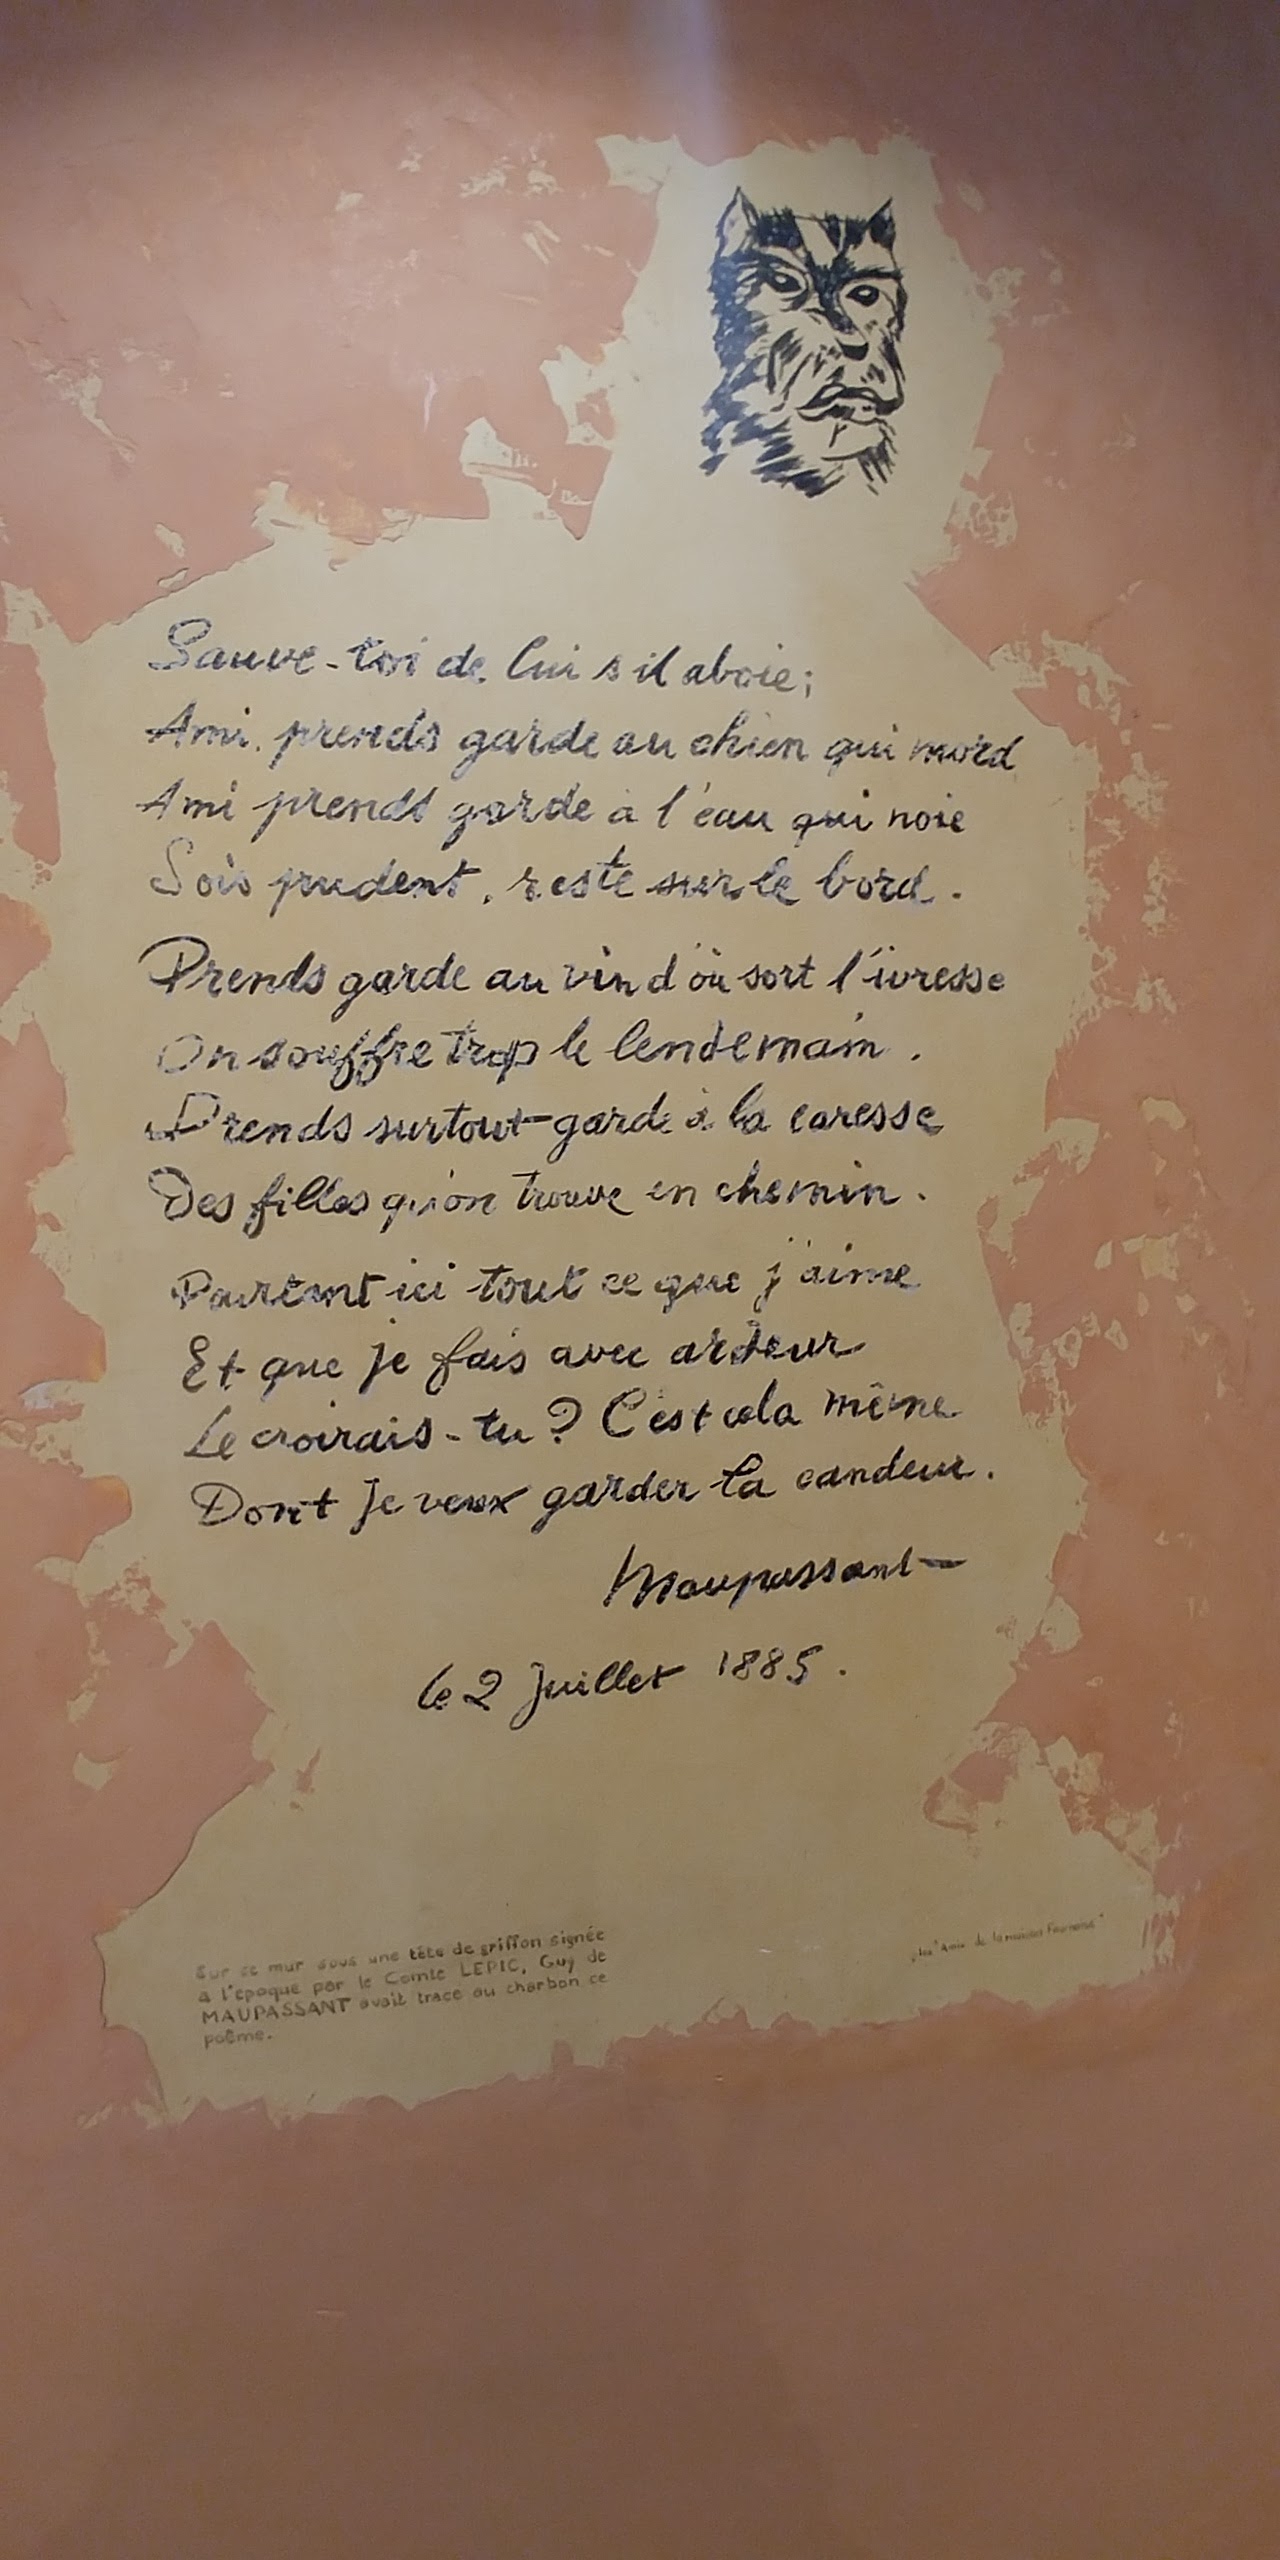 Sauve-toi de lui s'il aboie;
Ami, prends garde au chien qui mord
Ami prends garde à l'eau qui noie
Sois prudent, reste sur le bord.
Prends garde au vin d'où sort l'ivresse
On souffre trop le lendemain.
Prends surtout garde à la caresse
Des filles qu'on trouve en chemin.
Pourtant ici tout ce que j'aime
Et que je fais avec ardeur
Le croirais-tu? C'est cela même
Dont je veux garder la candeur.
Maupassant
le 2 Juillet 1885.
Sur ce mur sous une tête de griffon signée
à l'époque par le Comte LEPIC, Guy de
MAUPASSANT avait tracé au charbon ce
poême.
"les Amis de la maison Fournaise"